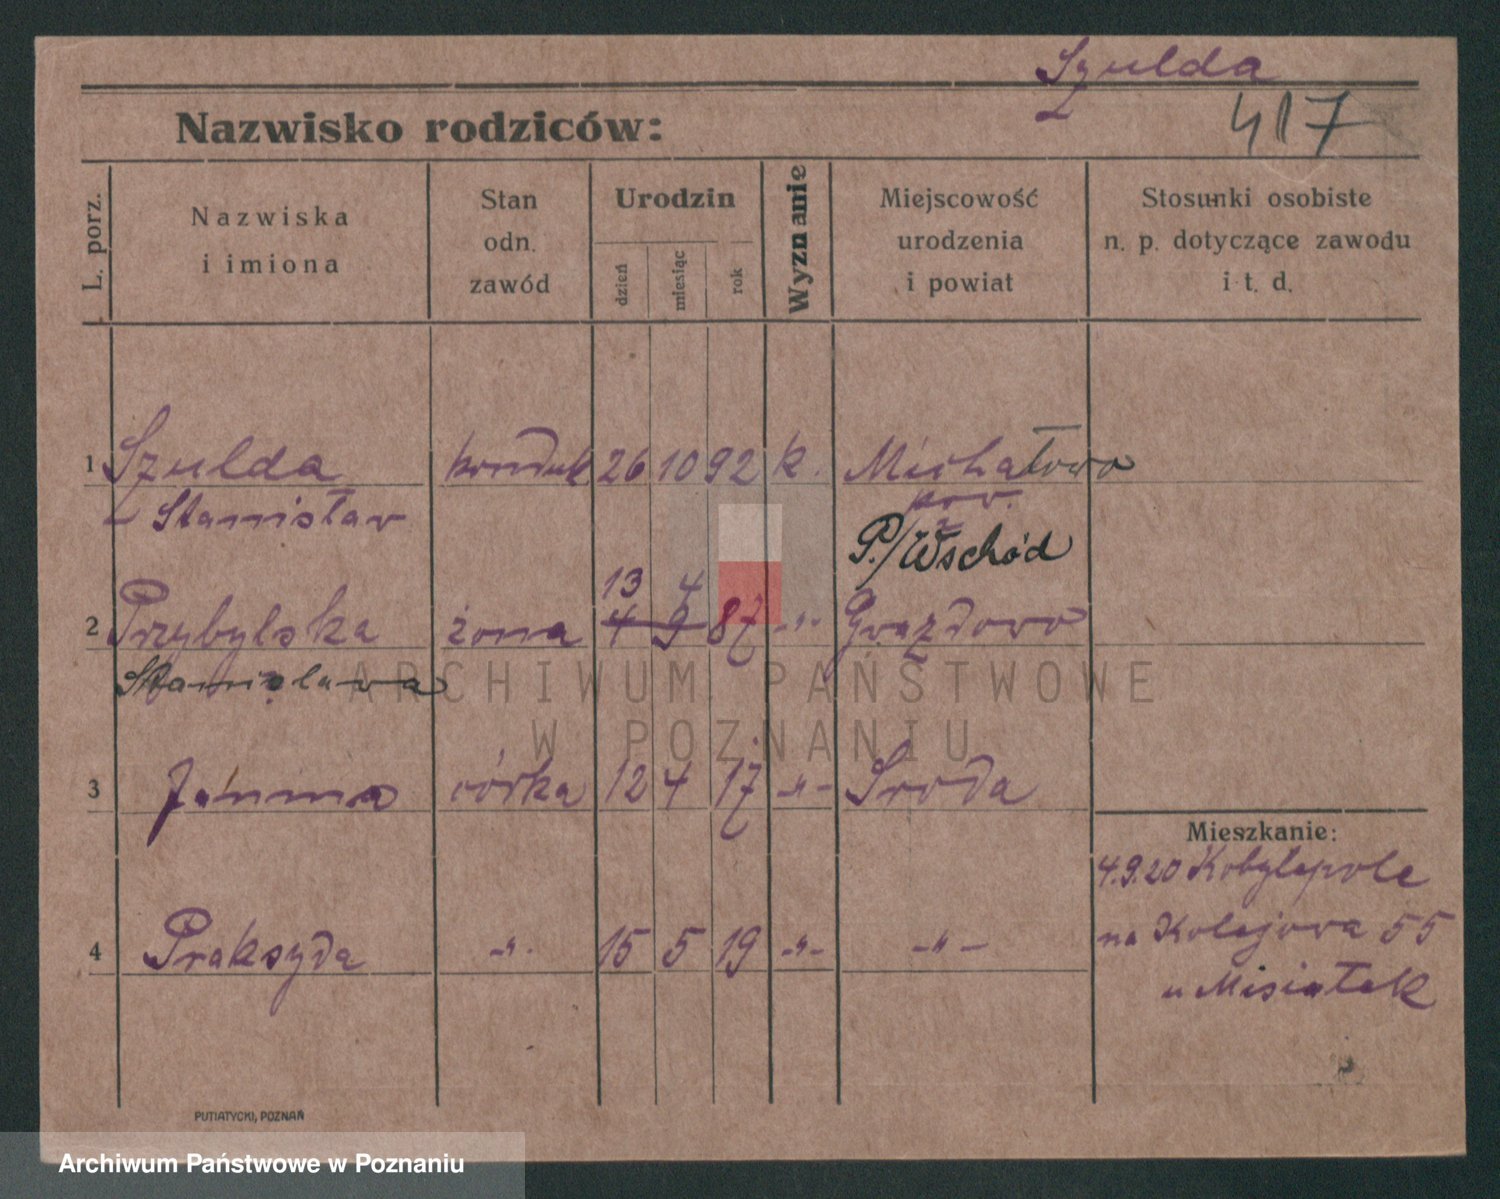 Szulda
Nazwisko rodziców:
417
L. porz.
Nazwiska
i imiona
Stan
odn.
zawód
Urodzin
dzień
miesiąc
rok
Wyznanie
Miejscowość
urodzenia
i powiat
Stosunki osobiste
n. p. dotyczące zawodu
i t. d.
1 Szulda konduk 26 10 92 k. Michałowo
Stanisław pow.
P./Wschód
13 4
2 Przybylska żona 4 9 87 -"- Gwazdowo
Stanisława
3 Janina córka 12 4 17 -"- Sroda
Mieszkanie:
4.9.20 Kobylepole
4 Praksyda -"- 15 5 19 -"- -"-
na Kolejowa 55
u Misiatek
PUTIATYCKI, POZNAŃ
ARCHIWUM PAŃSTWOWE
W POZNANIU
Archiwum Państwowe w Poznaniu